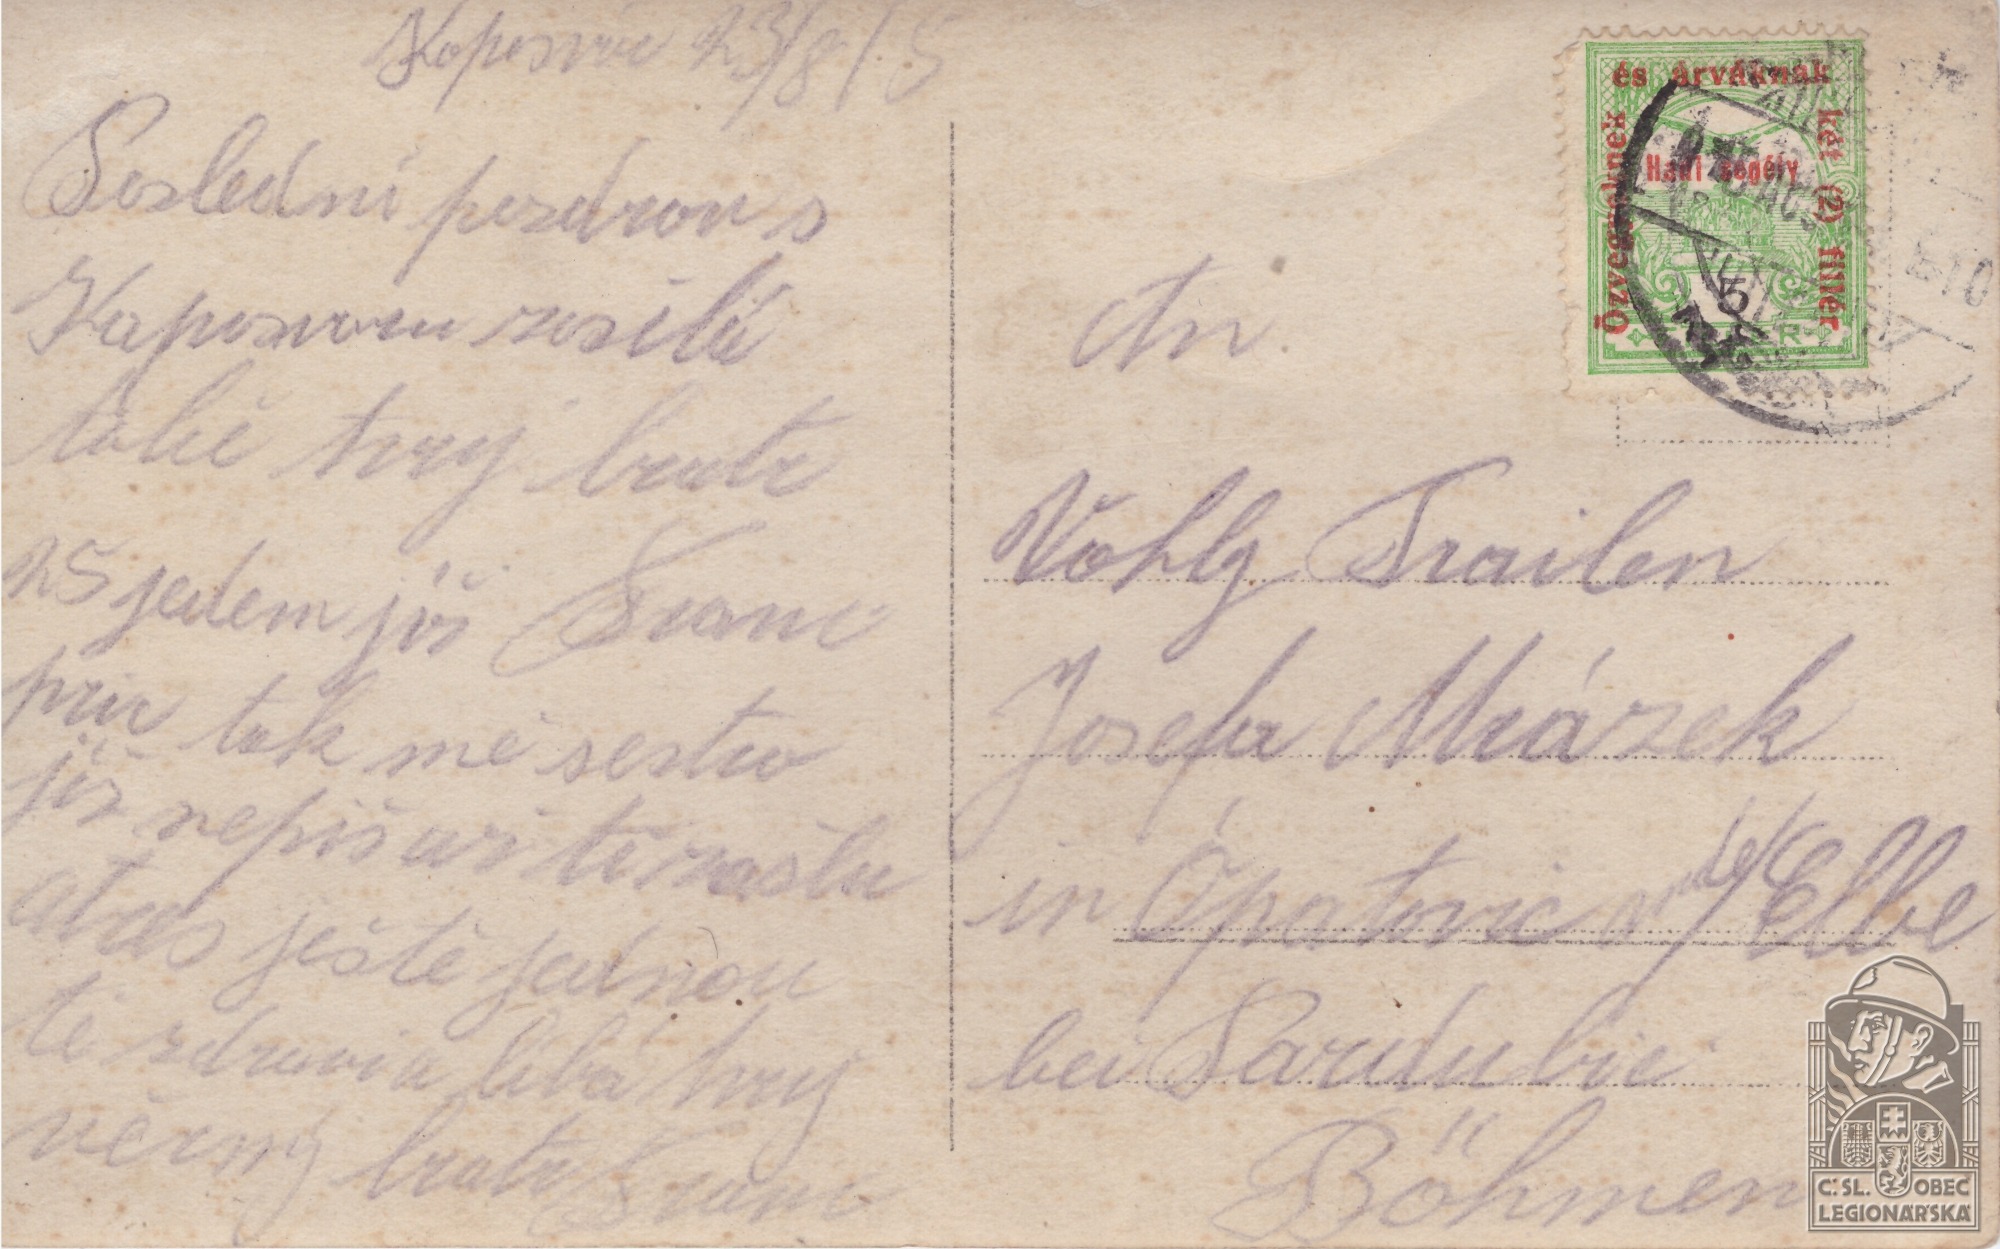 Kaposvár 23/8 15
Poslední pozdrav s
Kaposvaru zasílá
také tvůj bratr
Franc
25 jedem již
pric tak mě sestro
již nepiš až ti zašlu
atres ještě jednou
tě zdraví a líbá tvůj
věrný bratr Franc
An
Vohlg Frailen
Josefa Mrázek
in Opatovic a/Elbe
bei Pardubic
Böhmen
és árváknak
Özvegyeknek
két (2) fillér
Hadi segély
5
C. SL. OBEC
LEGIONÁŘSKÁ